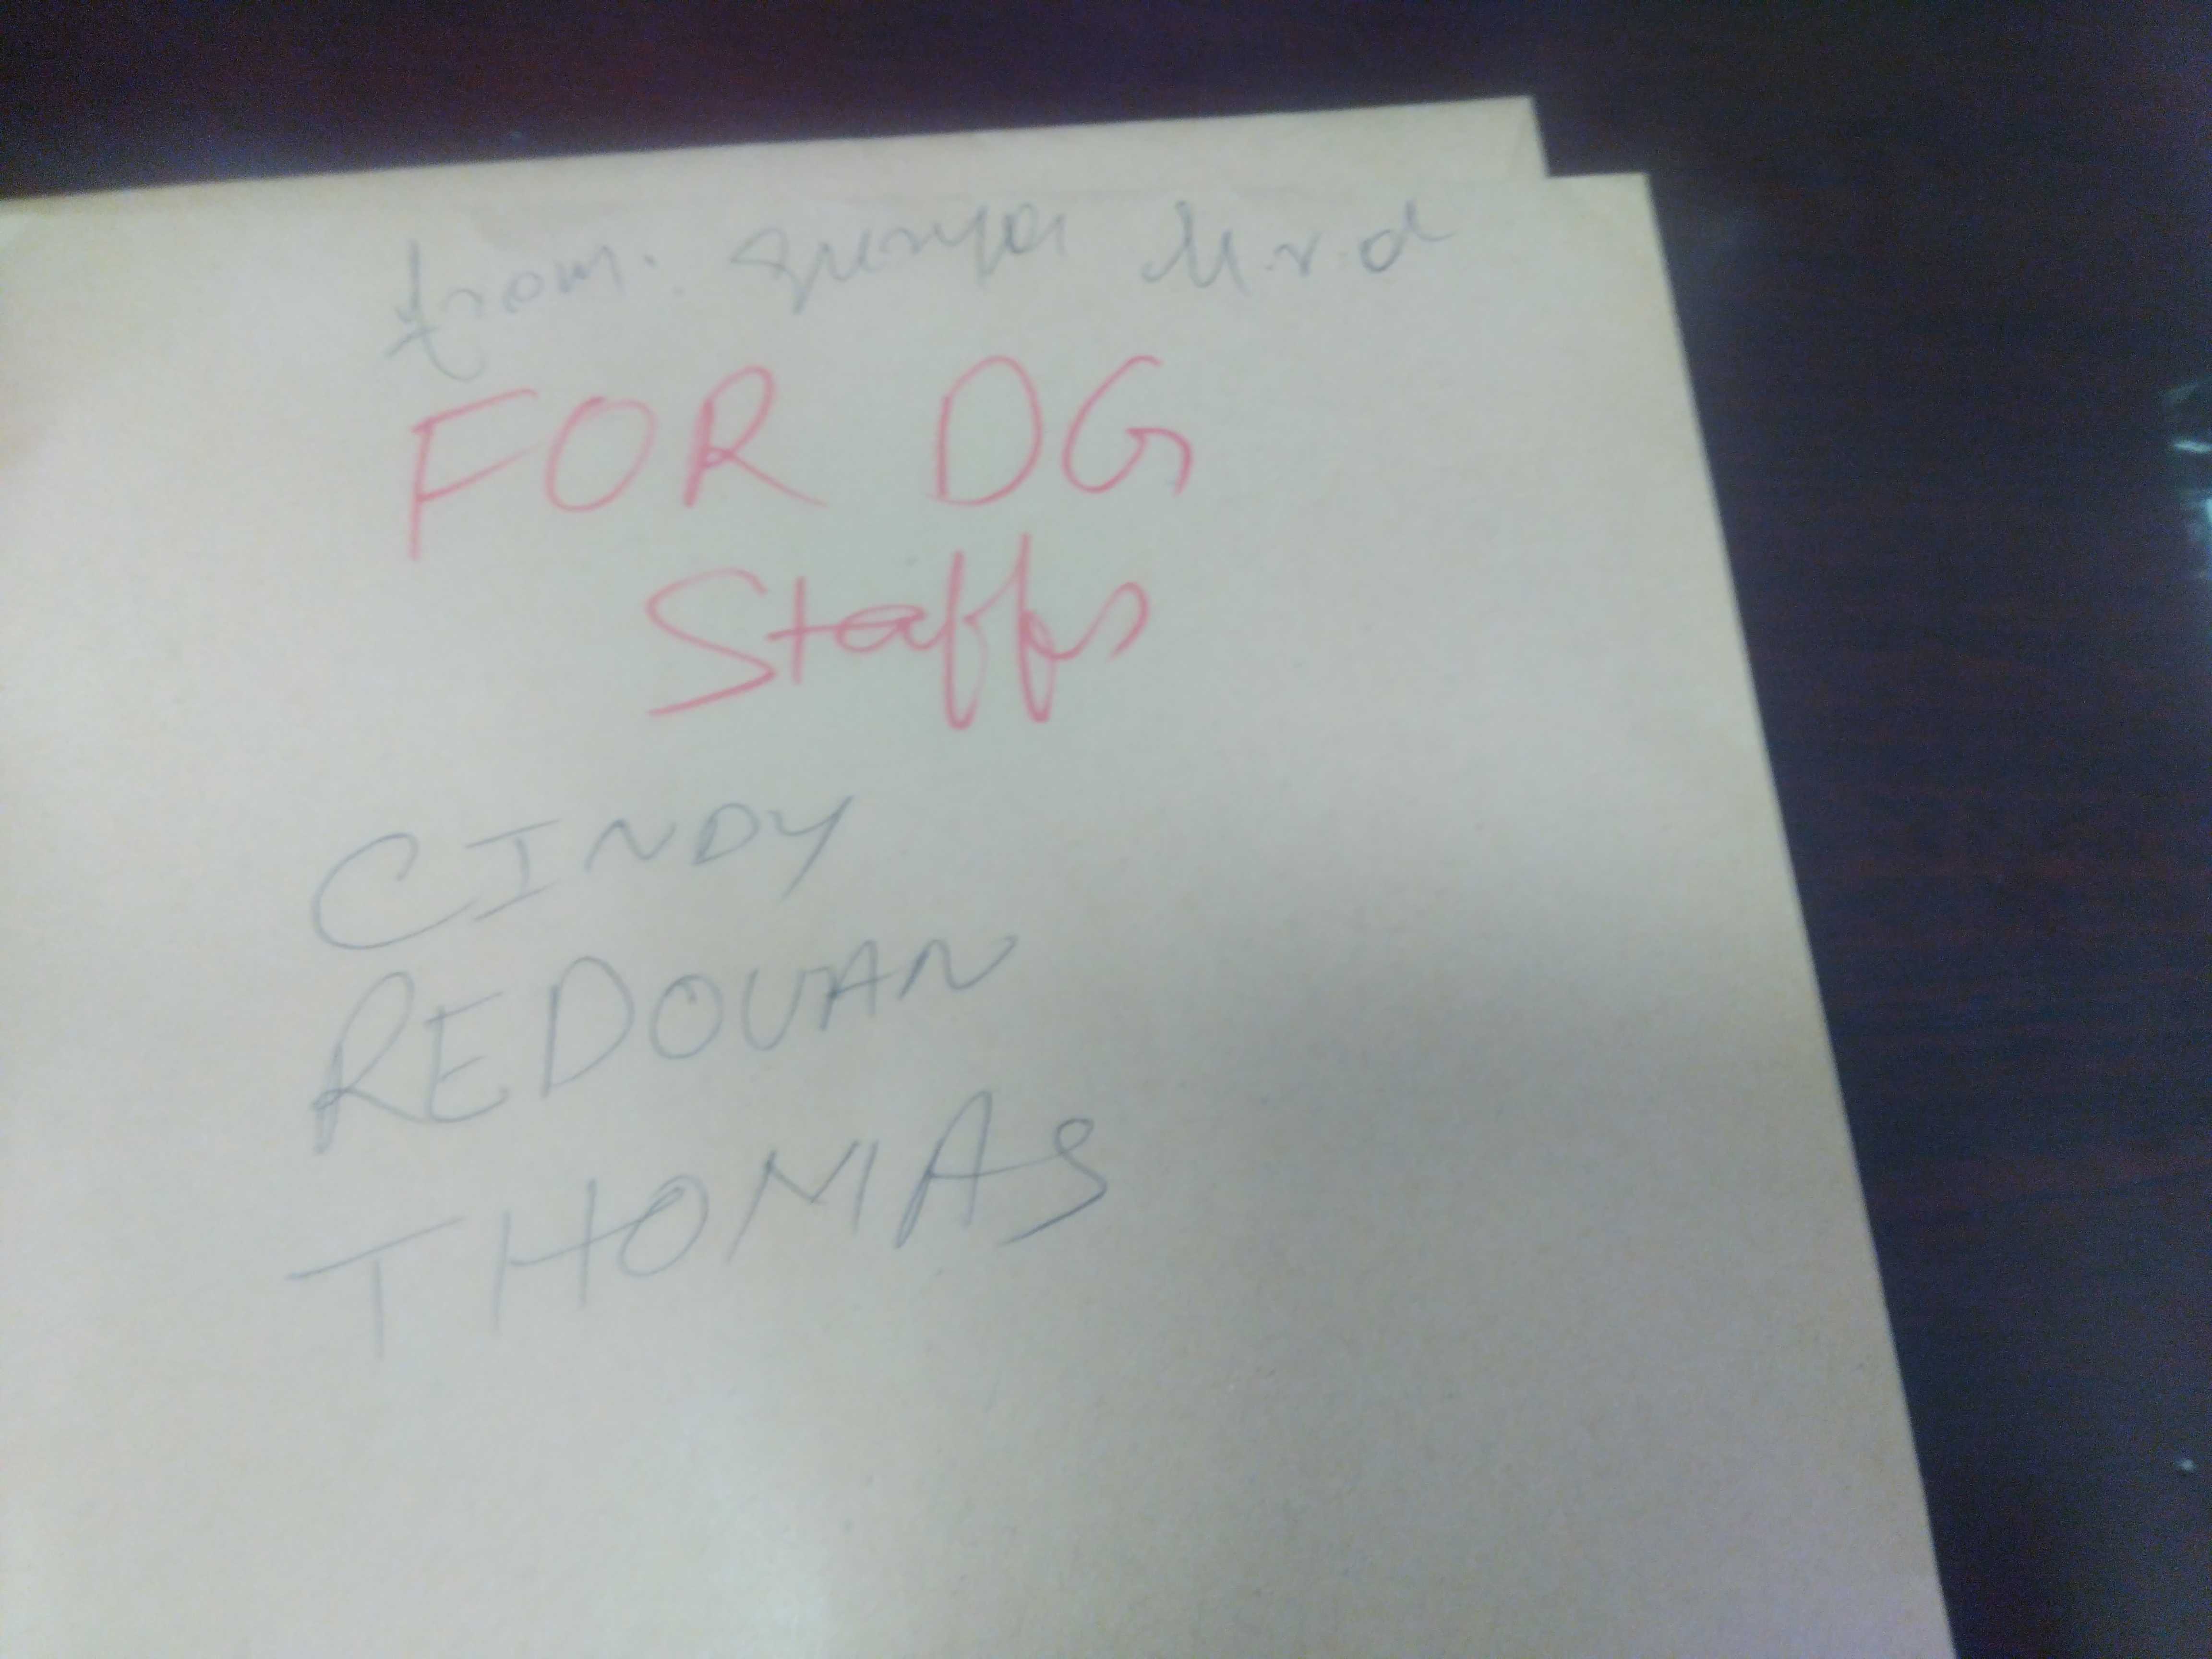 from:
FOR DG
Staffs
CINDY
REDOUAN
THOMAS